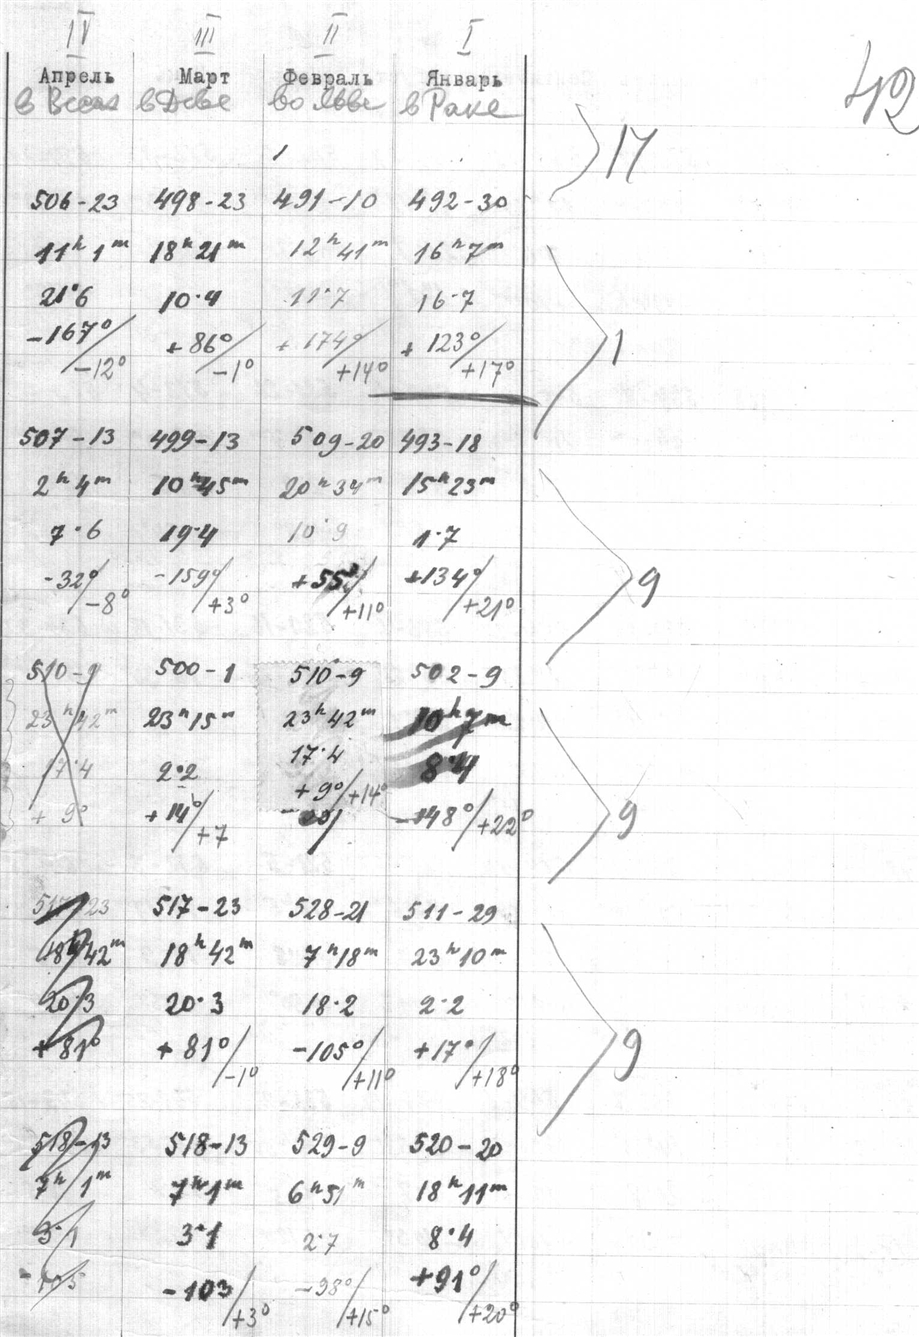 IV III II I
Апрель Март Февраль Январь
в Весах в Деве во Льве в Раке
42
17
506-23 498-23 491-10 492-30
11ʰ1ᵐ 18ʰ21ᵐ 12ʰ41ᵐ 16ʰ7ᵐ
21·6 10·4 16·7
-167°/-12° +86°/-1° +174°/+14° +123°/+17°
1
507-13 499-13 509-20 493-18
2ʰ4ᵐ 10ʰ45ᵐ 20ʰ34ᵐ 15ʰ23ᵐ
7·6 19·4 10·9 1·7
-32°/-8° -159°/+3° +55°/+11° +134°/+21°
9
510-9 500-1 510-9 502-9
23ʰ42ᵐ 23ʰ15ᵐ 23ʰ42ᵐ 10ʰ7ᵐ
17·4 2·2 17·4 8·4
+9° +14°/+7 +9°/+14° -148°/+22°
9
517-23 517-23 528-21 511-29
18ʰ42ᵐ 18ʰ42ᵐ 7ʰ18ᵐ 23ʰ10ᵐ
20·3 20·3 18·2 2·2
+81° +81°/-1° -105°/+11° +17°/+18°
9
518-13 518-13 529-9 520-20
7ʰ1ᵐ 7ʰ1ᵐ 6ʰ51ᵐ 18ʰ11ᵐ
3·1 3·1 2·7 8·4
-103/+3° -98°/+15° +91°/+20°